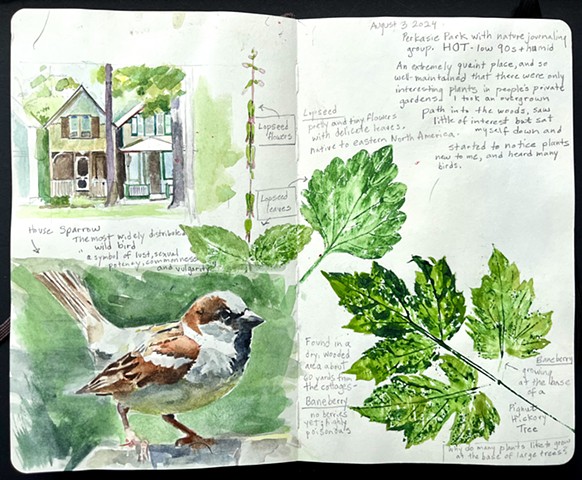 House Sparrow
The most widely distributed
wild bird
"a symbol of lust, sexual
potency, commonness
and vulgarity"
Lopseed
flowers
Lopseed
leaves
August 3 2024
Perkasie Park with nature journaling
group. HOT - low 90s + humid
An extremely quaint place, and so
well-maintained that there were only
interesting plants in people's private
gardens. I took an overgrown
path into the woods, saw
little of interest but sat
myself down and
started to notice plants
new to me, and heard many
birds.
Lopseed
pretty and tiny flowers
with delicate leaves.
native to eastern North America.
Found in a
dry, wooded
area about
60 yards from
the cottages.
Baneberry
no berries
yet, highly
poisonous
Baneberry
growing
at the base
of a
Pignut
Hickory
Tree
Why do many plants like to grow
at the base of large trees?